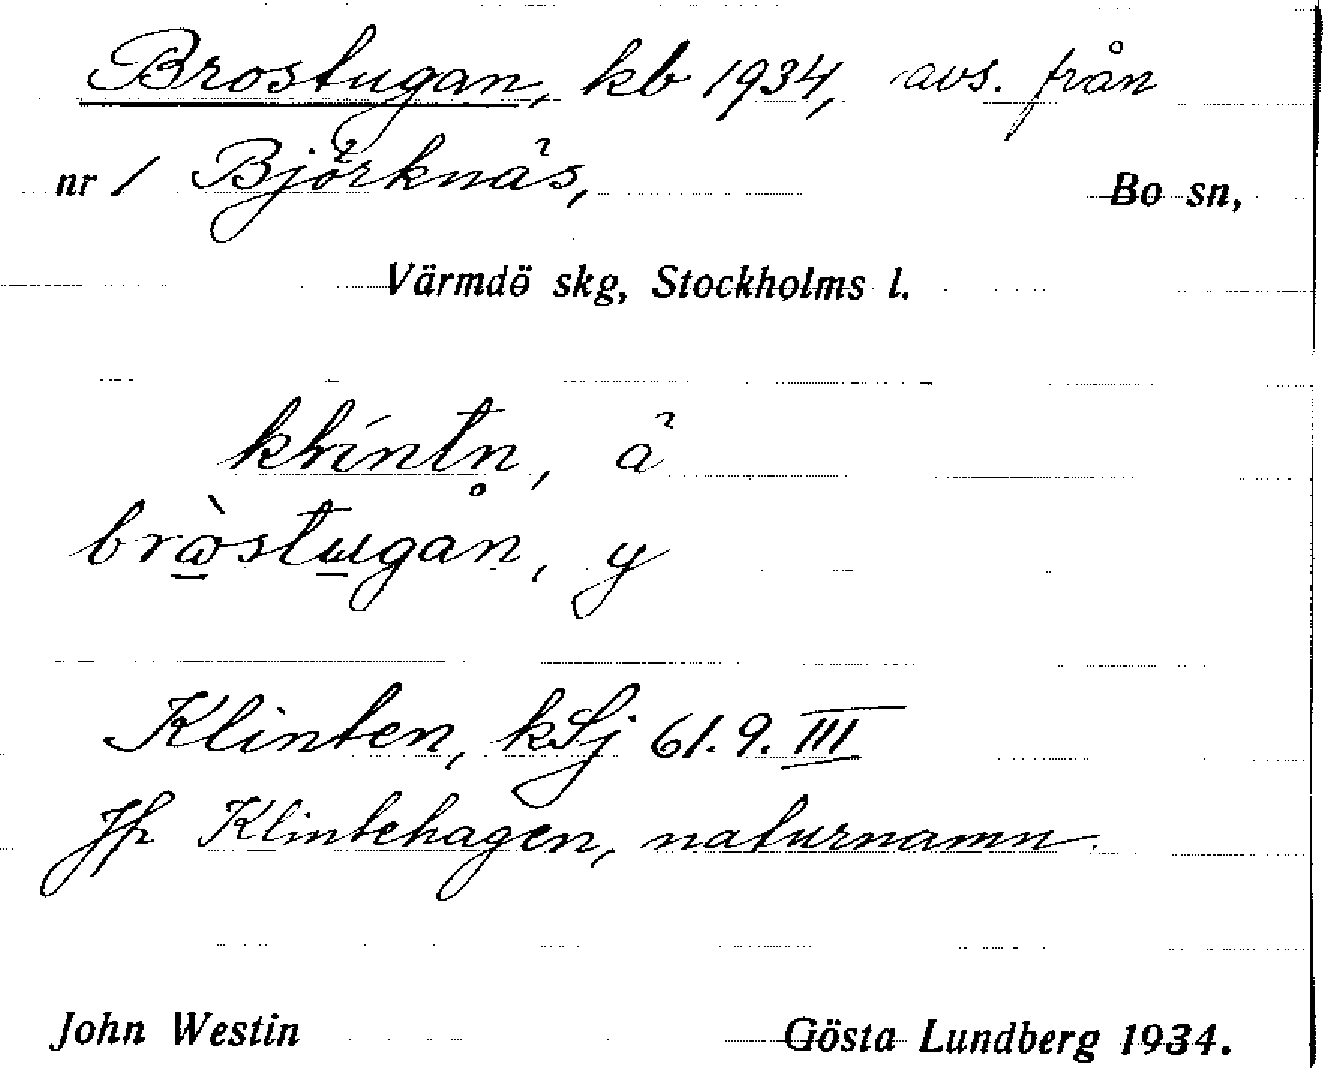 Brostugan, kb 1934, avs. från
nr 1 Björknäs, Bo sn,
Värmdö skg, Stockholms l.
klintn̥, ä
brὼstωgan, y
Klinten, kSj 61.9.III
Jfr Klintehagen, naturnamn.
John Westin Gösta Lundberg 1934.